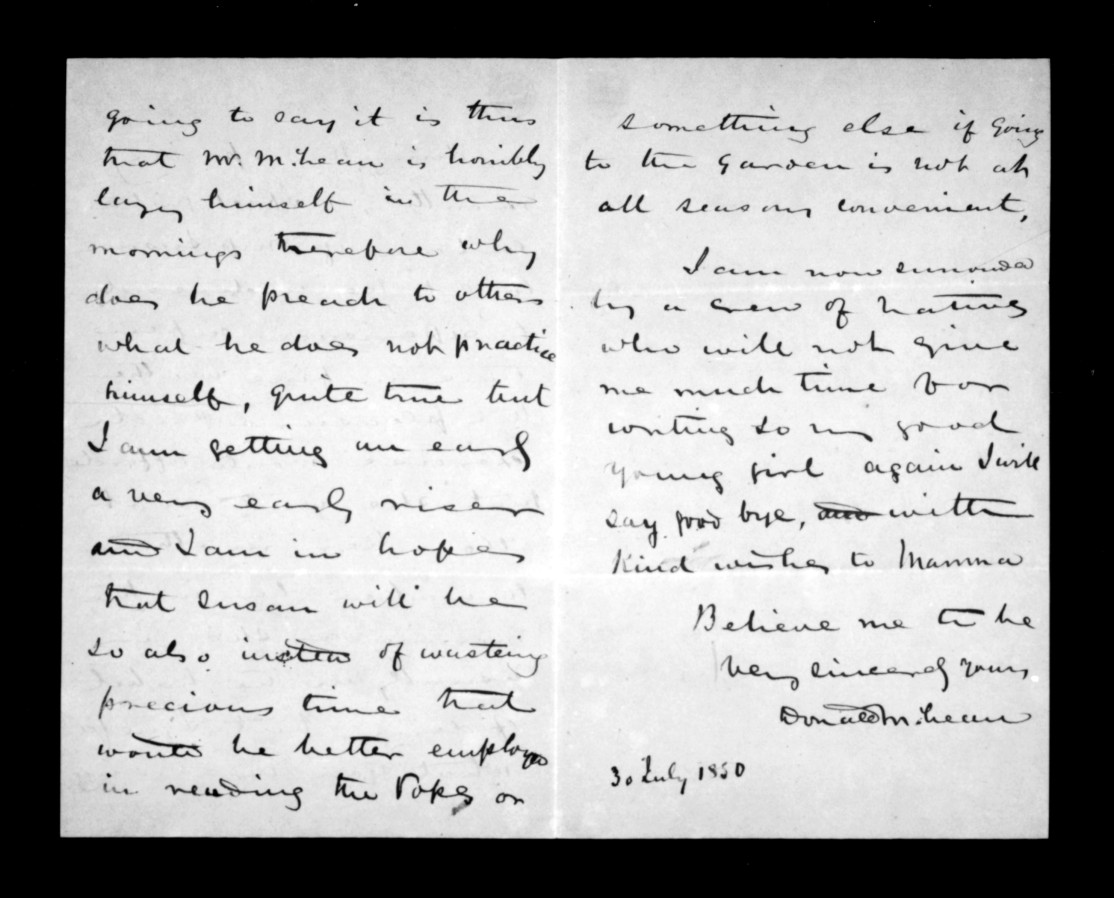 going to say it is this
that Mr. McLean is horribly
lazy himself in the
mornings therefore why
does he preach to others
what he does not practice
himself, quite true but
I am getting an early
a very early riser
and I am in hopes
that Susan will be
so also instead of wasting
precious time that
would be better employed
in reading the Popes or
something else if going
to the Garden is not at
all seasons convenient,
I am now surrounded
by a crew of natives
who will not give
me much time for
writing so my good
young girl again I will
say good bye, and with
kind wishes to Mamma
Believe me to be
Very sincerely yours
Donald McLean
30 July 1850